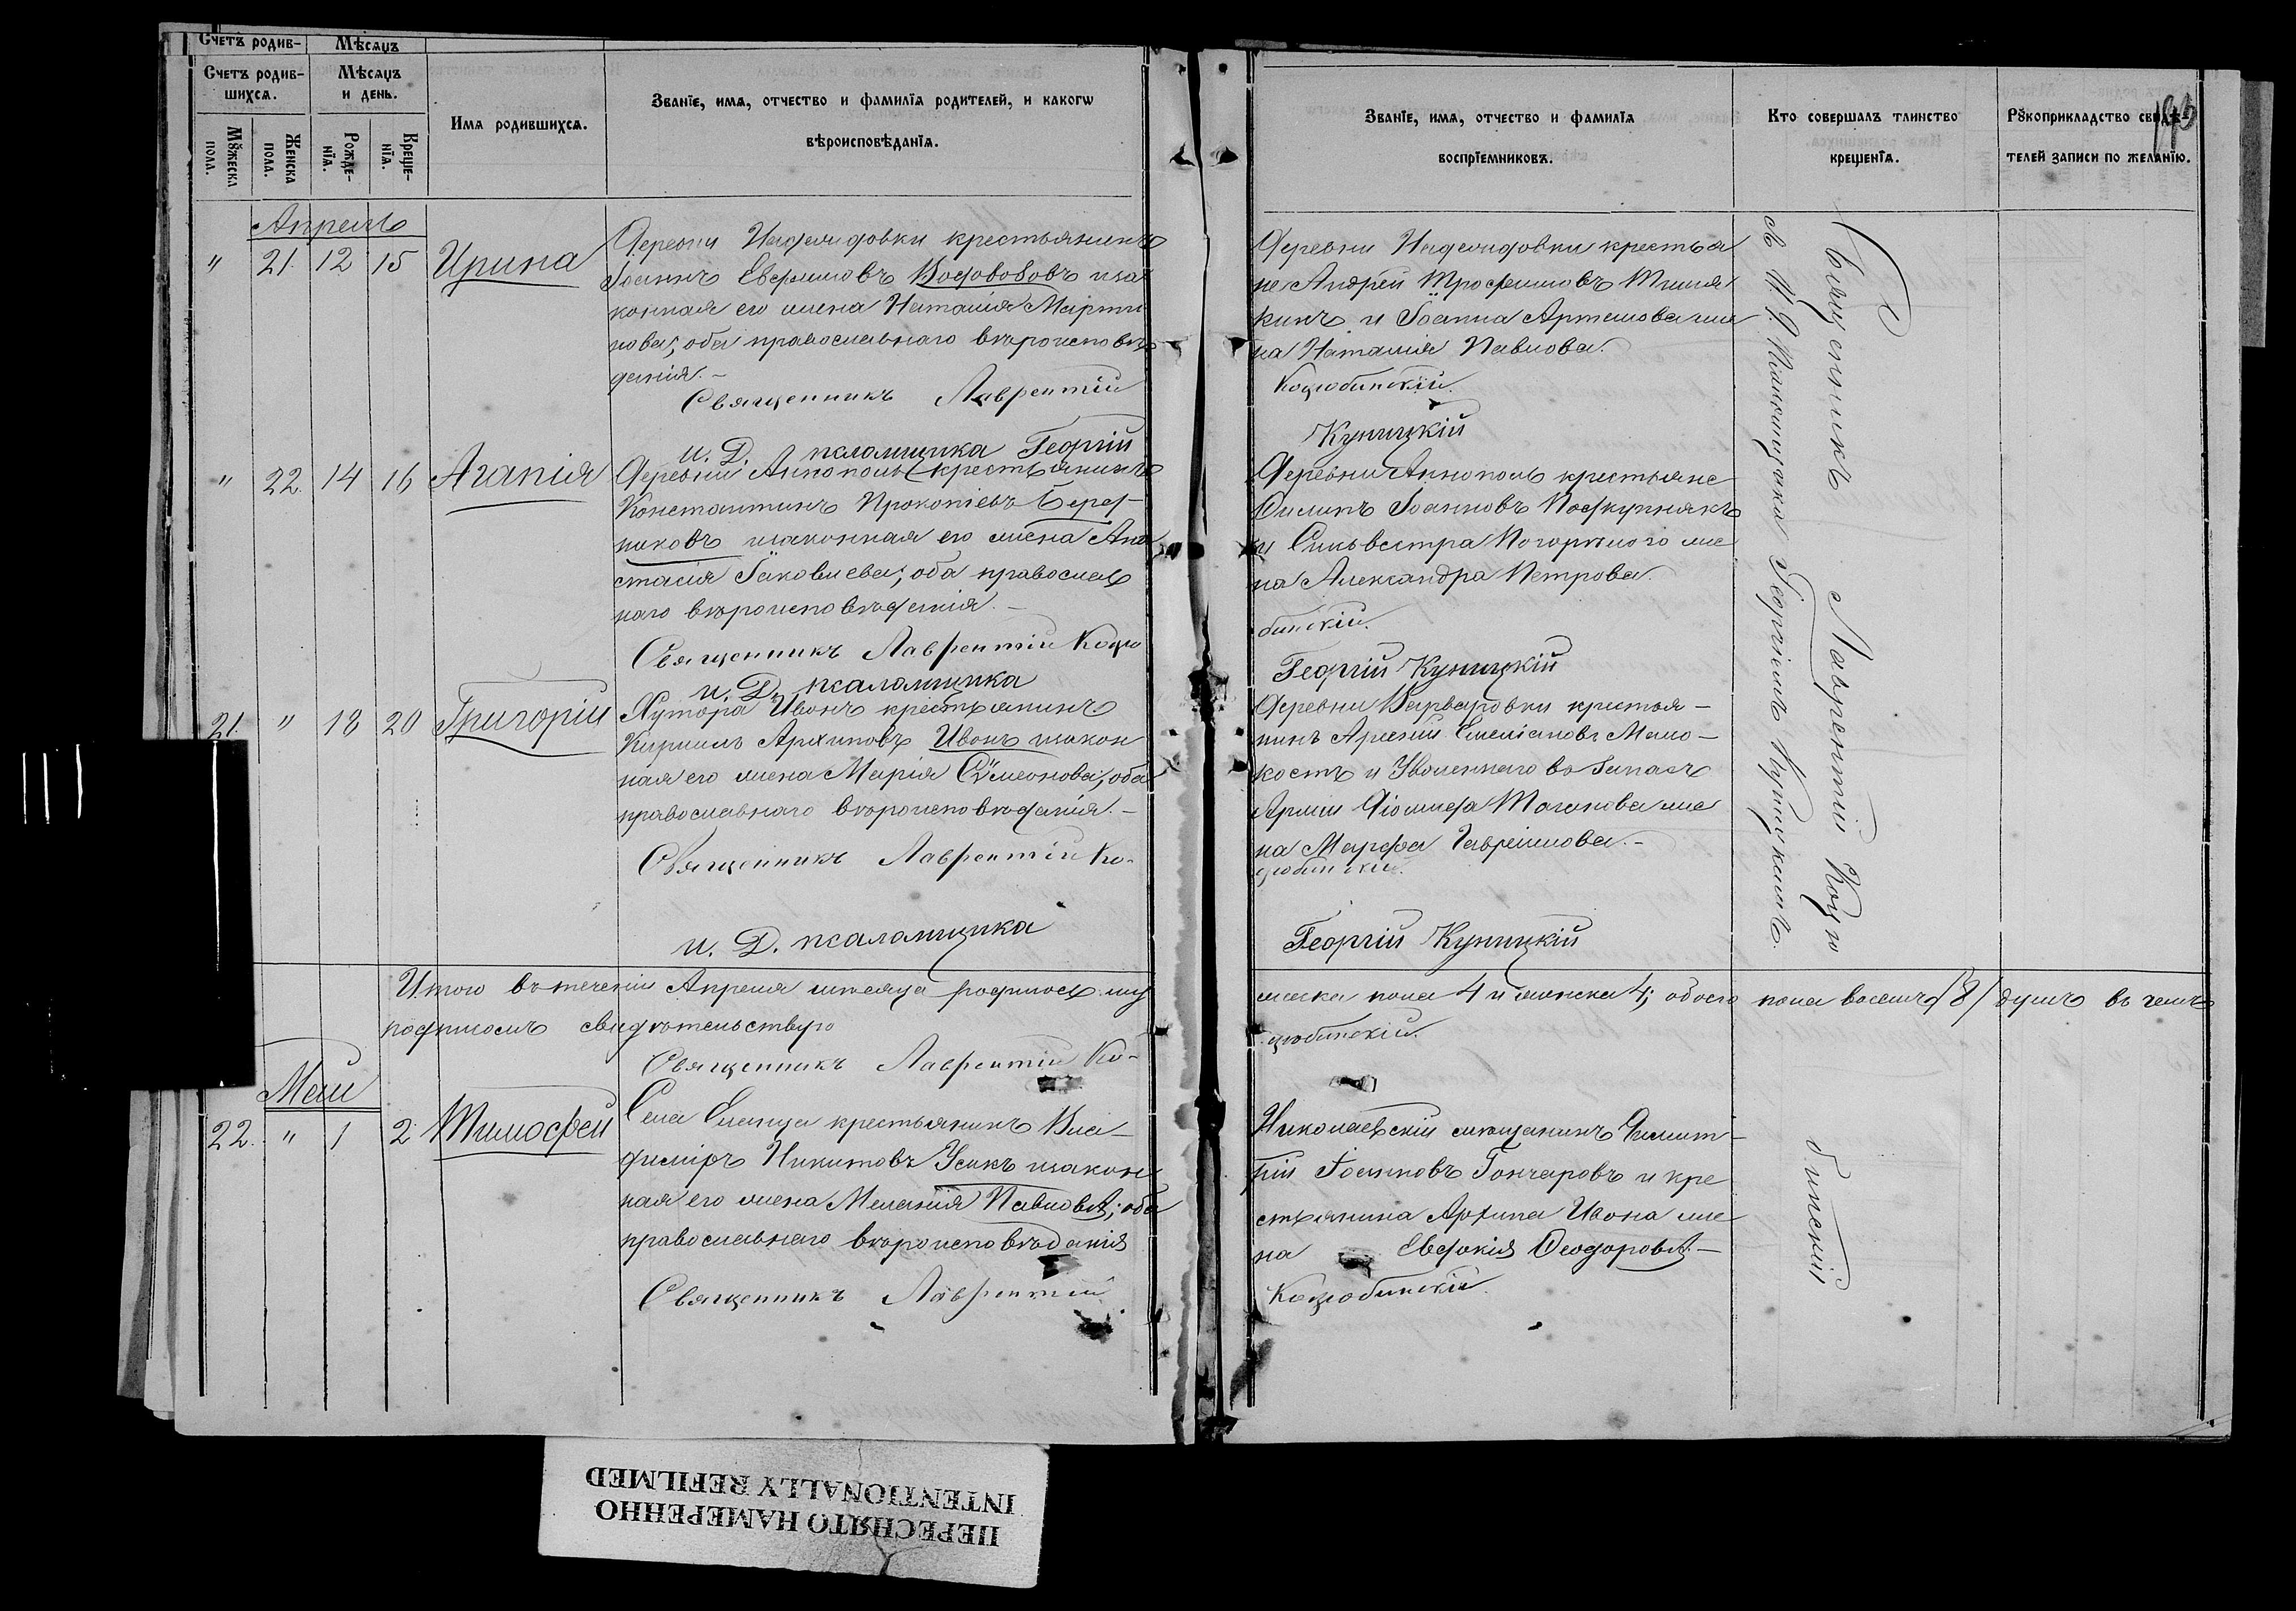 Счетъ родив-
Мѣсяцъ
Счетъ родив-
шихся.
Мѣсяцъ
и день.
Мꙋжеска
пола.
Женска
пола.
Рожде-
нїя.
Креще-
нїя.
Имя родившихся.
Званїе, имя, отчество и фамилїя родителей, и какогѡ
вѣроисповѣданїя.
Апрель
" 21. 12 15 Ирина
Деревни крестьянинъ
Іоаннъ Водовозовъ и за
конная его жена Наталія Марти
нова; оба православнаго вѣроисповѣ
данія.-
Священникъ Лаврентій
и. Д. псаломщика Георгій
" 22. 14 16 Агапія
Деревни Аннополь крестьянинъ
Константинъ Прокопіевъ Берез-
никовъ и законная его жена Ана
стасія Іаковлева; оба православ
наго вѣроисповѣданія.-
Священникъ Лаврентій Коцю
и. Д. псаломщика
21. " 18 20 Григорій
Хутора Ивонъ крестьянинъ
Кириллъ Архиповъ Ивонъ и закон
ная его жена Марія Сѷмеонова; оба
православнаго вѣроисповѣданія.-
Священникъ Лаврентій Ко-
и. Д. псаломщика
Итого въ теченіи Апреля мѣсяца родилось му
подписомъ свидѣтельствую
Священникъ Лаврентій Ко-
Май
22. " 1 2 Тимофей
Села Еланца крестьянинъ Вла-
димiръ Никитовъ Усикъ и закон
ная его жена Меланія Павлова; оба
православнаго вѣроисповѣданія
Священникъ Лаврентій
Званїе, имя, отчество и фамилїя
воспрїемниковъ.
Кто совершалъ таинство
крещенїя.
Рꙋкоприкладство свидѣ-
телей записи по желанїю.
Деревни крестья
не Андрей Трофимовъ
кинъ и Іоанна Артемова же
на Наталія Павлова.
Коцюбинскій.
Куницкій
Деревни Аннополь крестьяне
Филипъ Іоанновъ Поджупнякъ
и Сильвестра Погорѣлого же
на Александра Петрова.
бинскій.
Георгій Куницкій
Деревни Варваровки крестья-
нинъ Арсеній Емеліановъ Мало-
костъ и Уволеннаго въ Запасъ
Арміи Діомида же
на Марфа Гавриилова.-
цюбинскій.
Георгій Куницкій
жеска пола 4 и женска 4; обоего пола восемь /8/ душъ въ чемъ
цюбинскій.
Николаевскій мѣщанинъ Димит-
рій Іоанновъ Гончаровъ и кре
стьянина Архипа Ивона же
на Евдокія Ѳеодорова.-
Коцюбинскій.
Священникъ Лаврентій Коцю
бинскій
съ И. Д. Псаломщика Георгіемъ Куницкимъ.
ПЕРЕСНЯТО НАМЕРЕННО
INTENTIONALLY REFILMED